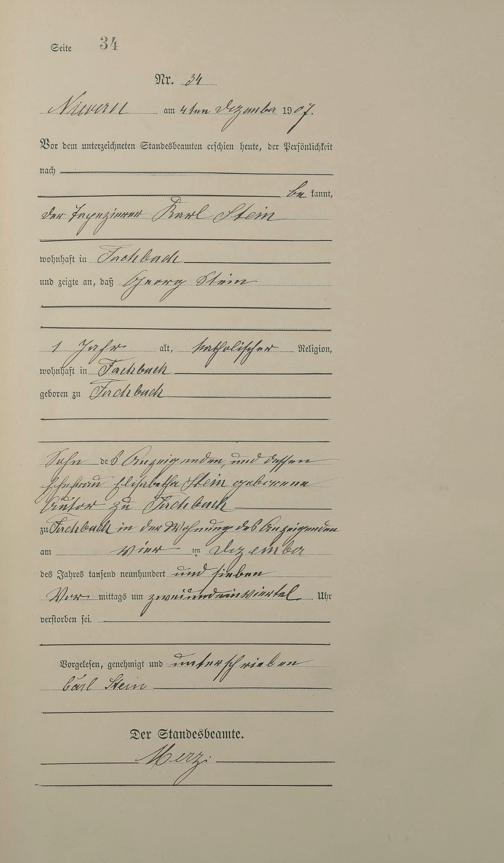 Seite 34
Nr. 34
Nievern am 4ten Dezember 1907.
Vor dem unterzeichneten Standesbeamten erschien heute, der Persönlichkeit
nach
be kannt,
der Tapezierer Karl Stein
wohnhaft in Fachbach
und zeigte an, daß Georg Stein
1 Jahr alt, katholischer Religion,
wohnhaft in Fachbach
geboren zu Fachbach
Sohn des Anzeigenden, und dessen
Ehefrau Elisabetha Stein geborene
zu Fachbach
zu Fachbach in der Wohnung des Anzeigenden
am vier ten Dezember
des Jahres tausend neunhundert und sieben
Vor mittags um zweiundeinviertel Uhr
verstorben sei.
Vorgelesen, genehmigt und unterschrieben
Carl Stein
Der Standesbeamte.
Merz